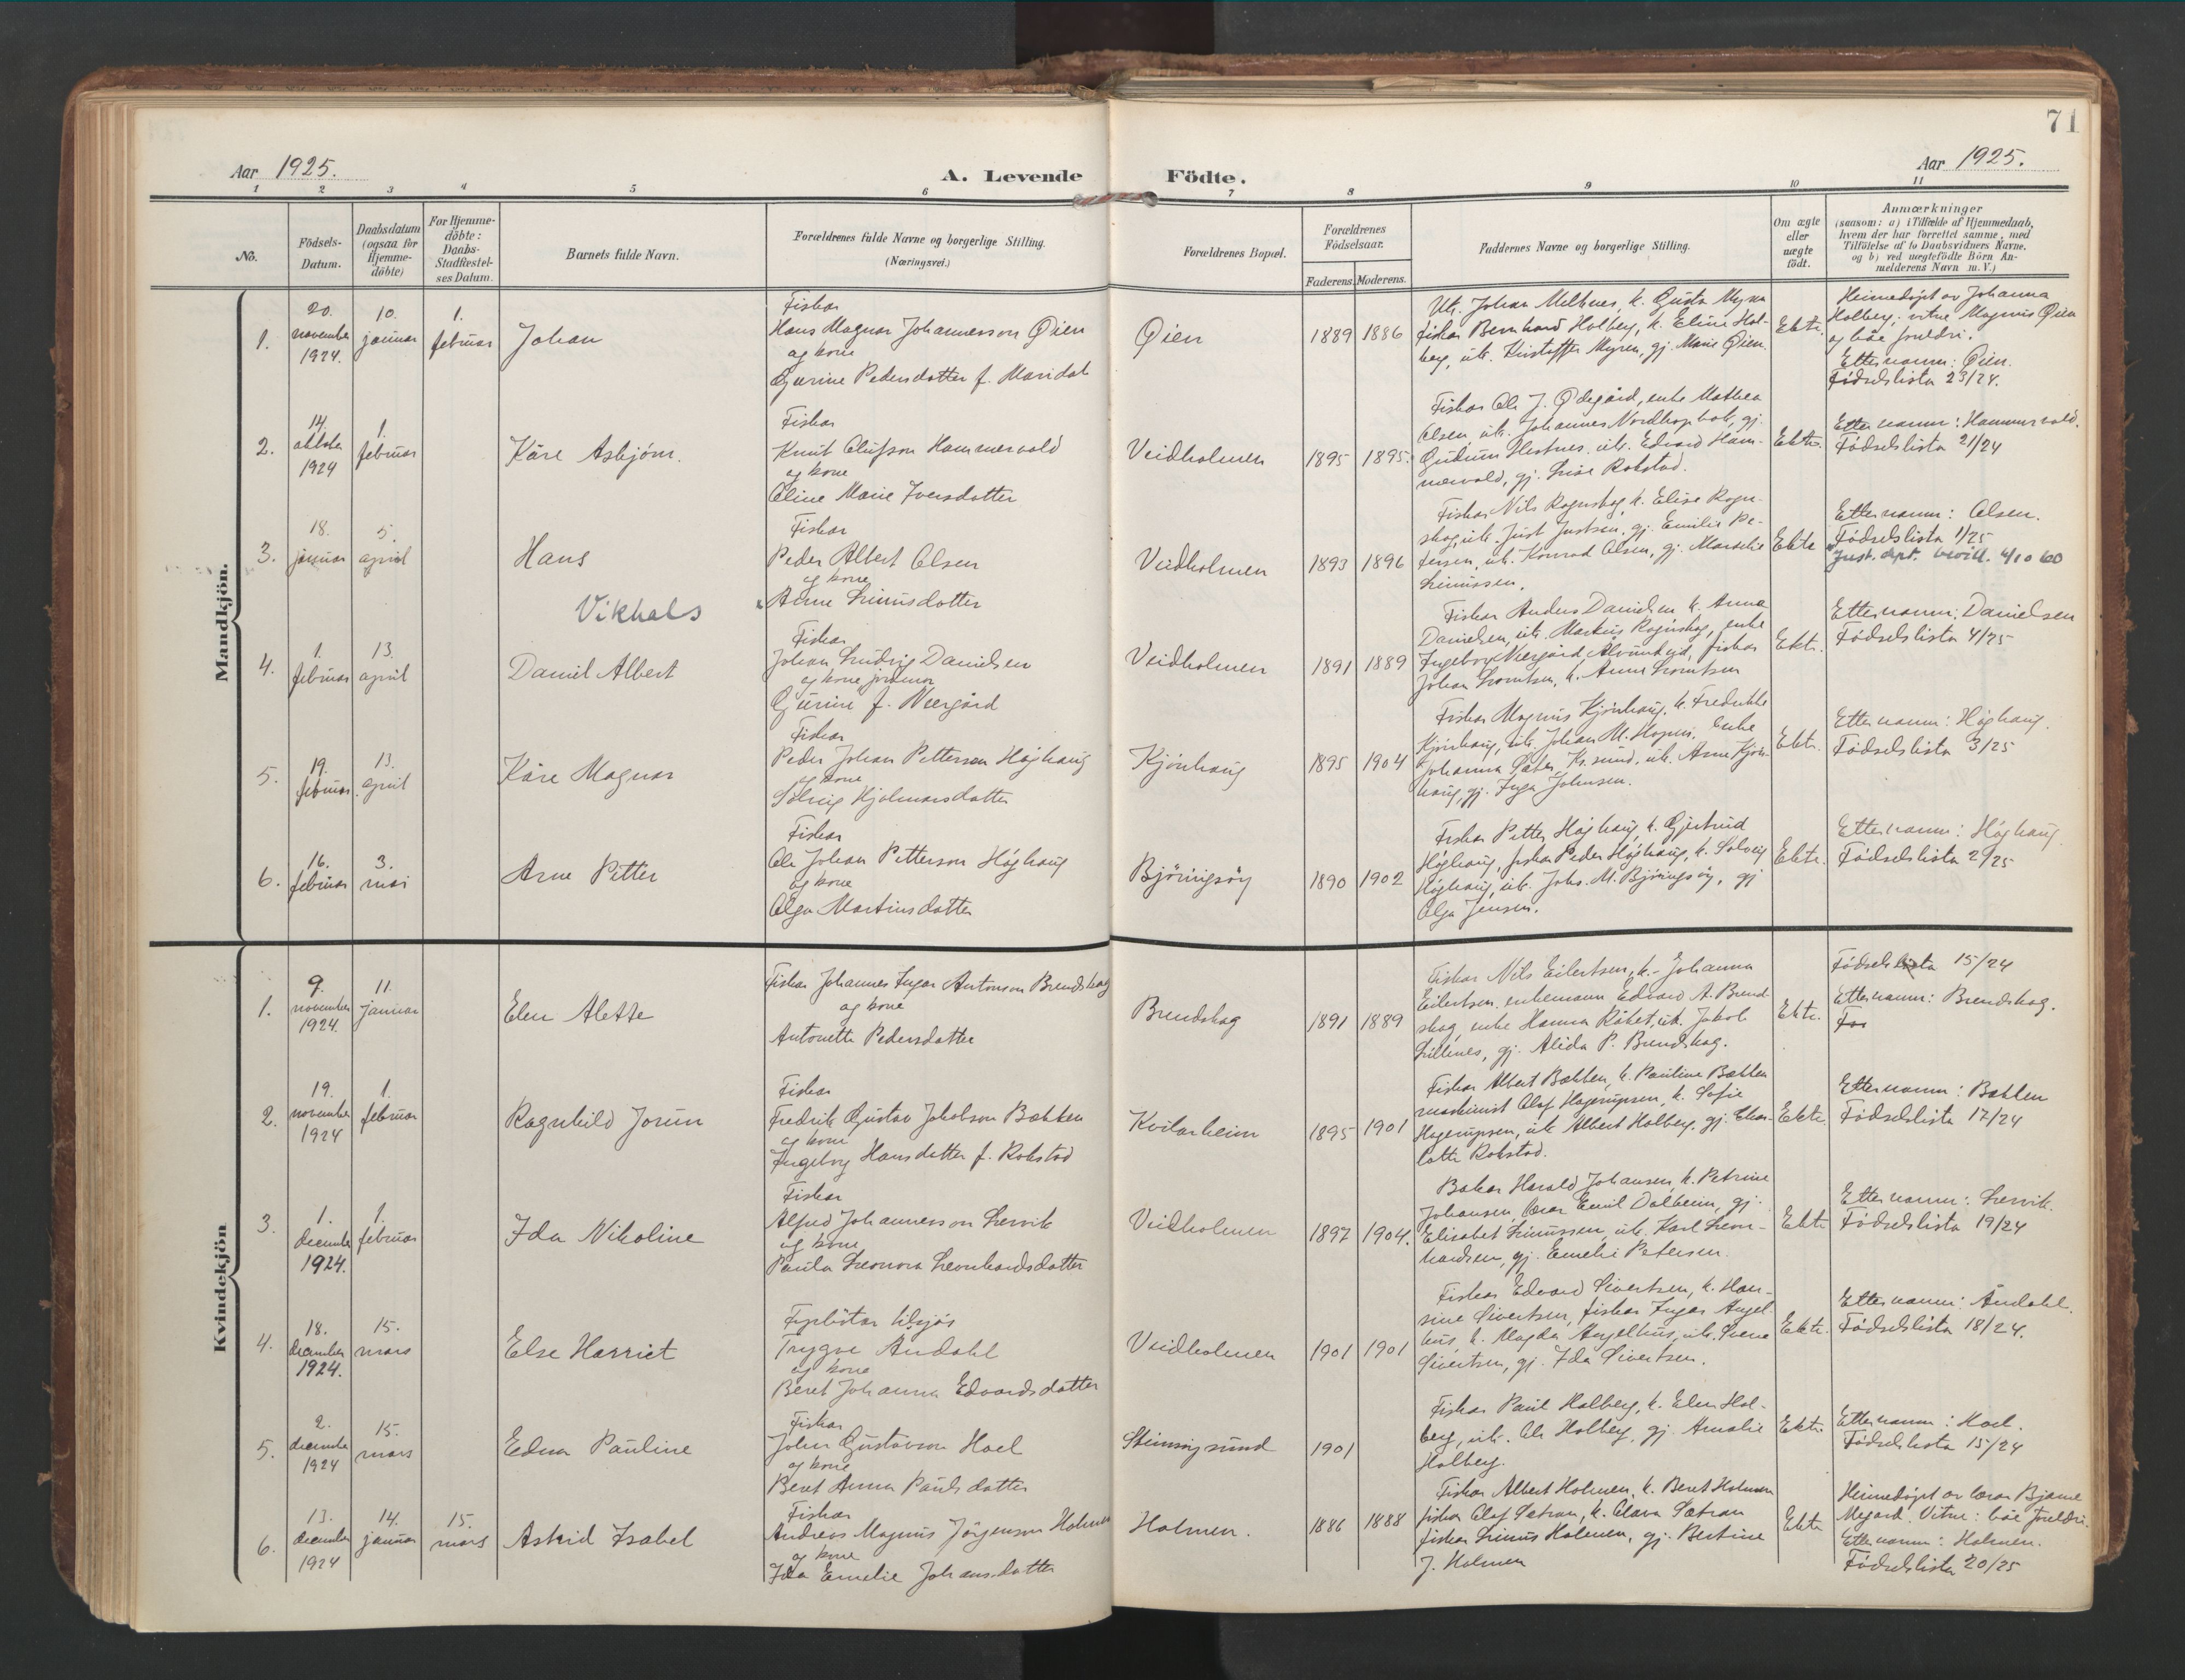 71
Aar 1925.
A. Levende Födte.
Aar 1925.
1 2 3 4 5 6 7 8 9 10 11
No.
Födsels-
Datum.
Daabsdatum
(ogsaa for
Hjemme-
döbte)
For Hjemme-
döbte:
Daabs-
Stadfæstel-
ses Datum.
Barnets fulde Navn.
Forældrenes fulde Navne og borgerlige Stilling.
(Næringsvei.)
Forældrenes Bopæl.
Forældrenes
Födselsaar.
Faderens. Moderens.
Faddernes Navne og borgerlige Stilling.
Om ægte
eller
uægte
födt.
Anmærkninger
(saasom: a) i Tilfælde af Hjemmedaab,
hvem der har forrettet samme, med
Tilföielse af to Daabsvidners Navne.
og b) ved uægtefödte Börn An-
melderens Navn m. V.)
Mandkjön.
1.
20.
november
1924.
10.
januar
1.
februar
Johan
Fiskar
Hans Magnus Johannesson Øien
og kone
Gjurine Pedersdotter f. Maridal
Øien
1889 1886
Uk. Johan Melhues, k. Gusta Myren
fiskar Bernhard Holberg, k. Eline Hol-
berg, uk. Kristoffer Myren, gj. Marie Øien.
Ekte.
Heimedöpt av Johanna
Holberg; vitne Magnus Øien
og båe foreldri.
Etternamn: Øien.
Födselslista 23/24.
2.
14.
oktober
1924
1.
februar
Kåre Asbjörn.
Fiskar
Knut Olufson Hammervold
og kone
Oline Marie Iversdotter
Veidholmen
1895 1895.
Fiskar Ole J. Ødegård, enke Mathea
Olsen, uk. Johannes Nordhopbak, gj.
Gudrun Hestnes, uk. Edvard Ham-
mervold, gj. Lise Rokstad.
Ekte.
Etternamn: Hammervold.
Födselslista 21/24
3.
18.
januar
5.
april
Hans
Vikhals
Fiskar
Peder Albert Olsen
og kone
x Anne Linusdotter
Veidholmen
1893 1896
Fiskar Nils Rognskog, k. Elise Rogn-
skog, uk. Just Justsen, gj. Emilie Pe-
tersen, uk. Konrad Olsen, gj. Marselie
Linussen.
Ekte
Etternamn: Olsen.
Födselslista 1/25
x Just. dept. bevill. 4/10 60
4.
1.
februar
13.
april
Daniel Albert
Fiskar
Johan Ludvig Danielsen
og kone jormor
Gjurine f. Neergård
Veidholmen
1891 1889
Fiskar Anders Danielsen k. Anna
Danielsen, uk. Markus Rognskog, enke
Ingeborg Neergård, fiskar
Johan Lorntsen, k. Anne Lorntsen
Ekte.
Etternamn: Danielsen
Födselslista 4/25
5.
19.
februar.
13.
april
Kåre Magnar
Fiskar
Peder Johan Pettersen Höghaug
og kone
Solveig Hjalmarsdotter
Kjönhaug
1895 1904
Fiskar Magnus Kjönhaug, k. Fredrikke
Kjönhaug, uk. Johan M. Hopen, enke
Johanna Sæter, Kr.sund, uk. Arne Kjön-
haug, gj. Inga Johnsen.
Ekte.
Etternamn: Höghaug.
Födselslista 3/25
6.
16.
februar
3.
mai
Arne Petter
Fiskar
Ole Johan Petterson Höghaug
og kone
Olga Martinsdotter
Björingsöy
1890 1902
Fiskar Petter Höghaug, k. Gjertrud
Höghaug, fiskar Peder Höghaug, k. Solveig
Höghaug, uk. Johs. M. Björingsöy, gj
Olga Jensen.
Ekte.
Etternamn: Höghaug
Födselslista 2/25
Kvindekjön
1.
9.
november
1924.
11.
januar
Elen Alette
Fiskar Johannes Ingar Antonson Brendskag
og kone
Antonette Pedersdotter
Brendskag
1891 1889
Fiskar Nils Eilertsen, k. Johanna
Eilertsen. enkemann Edvard A. Brend-
skag, enke Hanna Råket, uk. Jakob
Lillenes, gj. Alida P. Brendskag.
Ekte.
Födselslista 15/24
Etternamn: Brendskag.
2.
19.
november
1924
1.
februar
Ragnhild Jorun
Fiskar
Fredrik Gustav Jakobson Bakken
og kone
Ingeborg Hansdotter f. Rokstad
Kvitarheim
1895 1901
Fiskar Albert Bakken, k. Pauline Bakken
maskinist Olaf Hagerupsen, k. Sofie
Hagerupsen, uk. Albert Holberg. gj. Char-
lotte Rokstad.
Ekte.
Etternamn: Bakken
Födselslista 17/24
3.
1.
december
1924.
1.
februar
Ida Nikoline
Fiskar
Alfred Johannesson Lervik
og kone
Paula Leonora Leonhardsdotter
Veidholmen
1897 1904.
Bakar Harald Johansen, k. Petrine
Johansen lærar Emil Dalheim, gj.
Elisabet Linussen, uk. Karl Leon-
hardsen, gj. Emelie Petersen.
Ekte
Etternamn: Lervik.
Födselslista 19/24
4.
18.
december
1924.
15.
mars
Else Harriet
Fyrbötar tilsjös
Trygve Aundahl
og kone
Beret Johanna Edvardsdotter
Veidholmen
1901 1901
Fiskar Edvard Sivertsen, k. Han-
sine Sivertsen, fiskar Ingar Angel-
hus, k. Magda Angelhus, uk. Sverre
Sivertsen, gj. Ida Sivertsen.
Ekte.
Etternamn: Aundahl.
Födselslista 18/24.
5.
2.
december
1924
15.
mars
Edna Pauline
Fiskar
John Gustavson Hoel
og kone
Beret Anna Paulsdotter
Steinsysund
1901
Fiskar Paul Holberg, k. Elen Hol-
berg, uk. Ole Holberg, gj. Amalie
Holberg.
Ekte.
Etternamn: Hoel.
Födselslista 15/24
6.
13.
december
1924
14.
januar
15.
mars
Astrid Isabel
Fiskar
Andreas Magnus Jörgenson Holmen
og kone
Ida Emelie Johansdotter
Holmen.
1886 1888
Fiskar Albert Holmen, k. Beret Holmen
fiskar Olaf Sætran, k. Clara Sætran
fiskar Linus Holmen, gj. Bertine
J. Holmen
Ekte
Heimedöpt av lærar Bjarne
Megard. Vitne: båe foreldri.
Etternamn: Holmen.
Födselslista 20/25